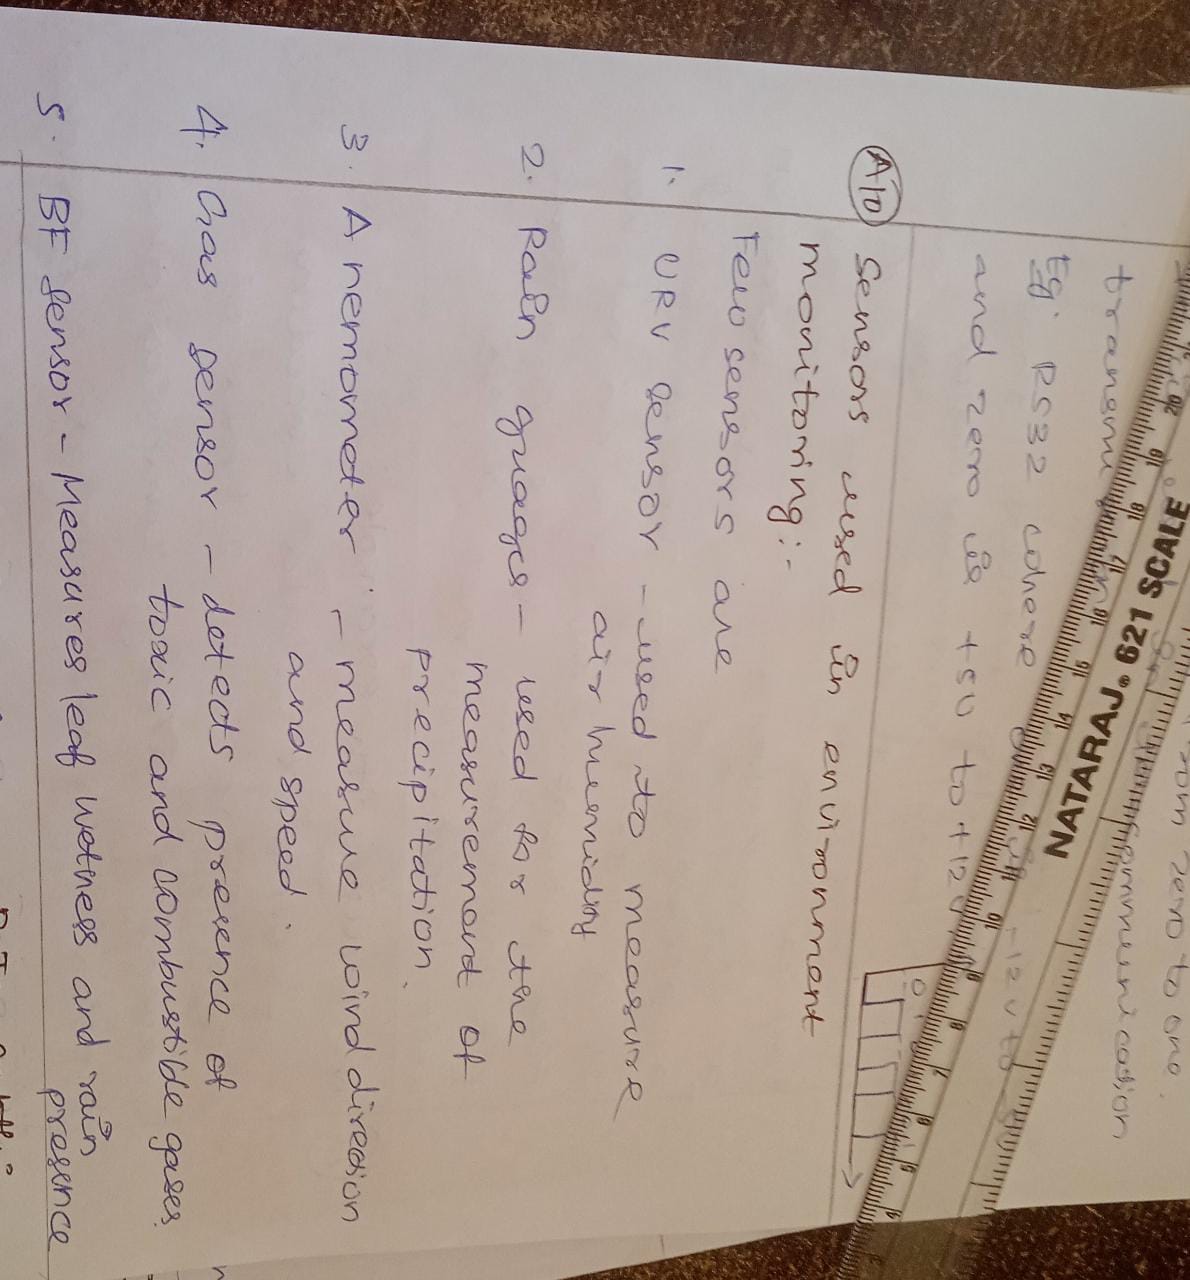 rom zero to one.
transmi
communication
Eg: RS32 where -12v to
and zero is +5v to +12v
NATARAJ 621 SCALE
A10 Sensors used in environment
monitoring:-
Few sensors are
1. URV sensor - used to measure
air humidity
2. Rain guages - used for the
measurement of
precipitation.
3. Anemometer - measure wind direction
and speed.
4. Gas sensor - detects presence of
toxic and combustible gases.
5. BF sensor - Measures leaf wetness and rain
presence